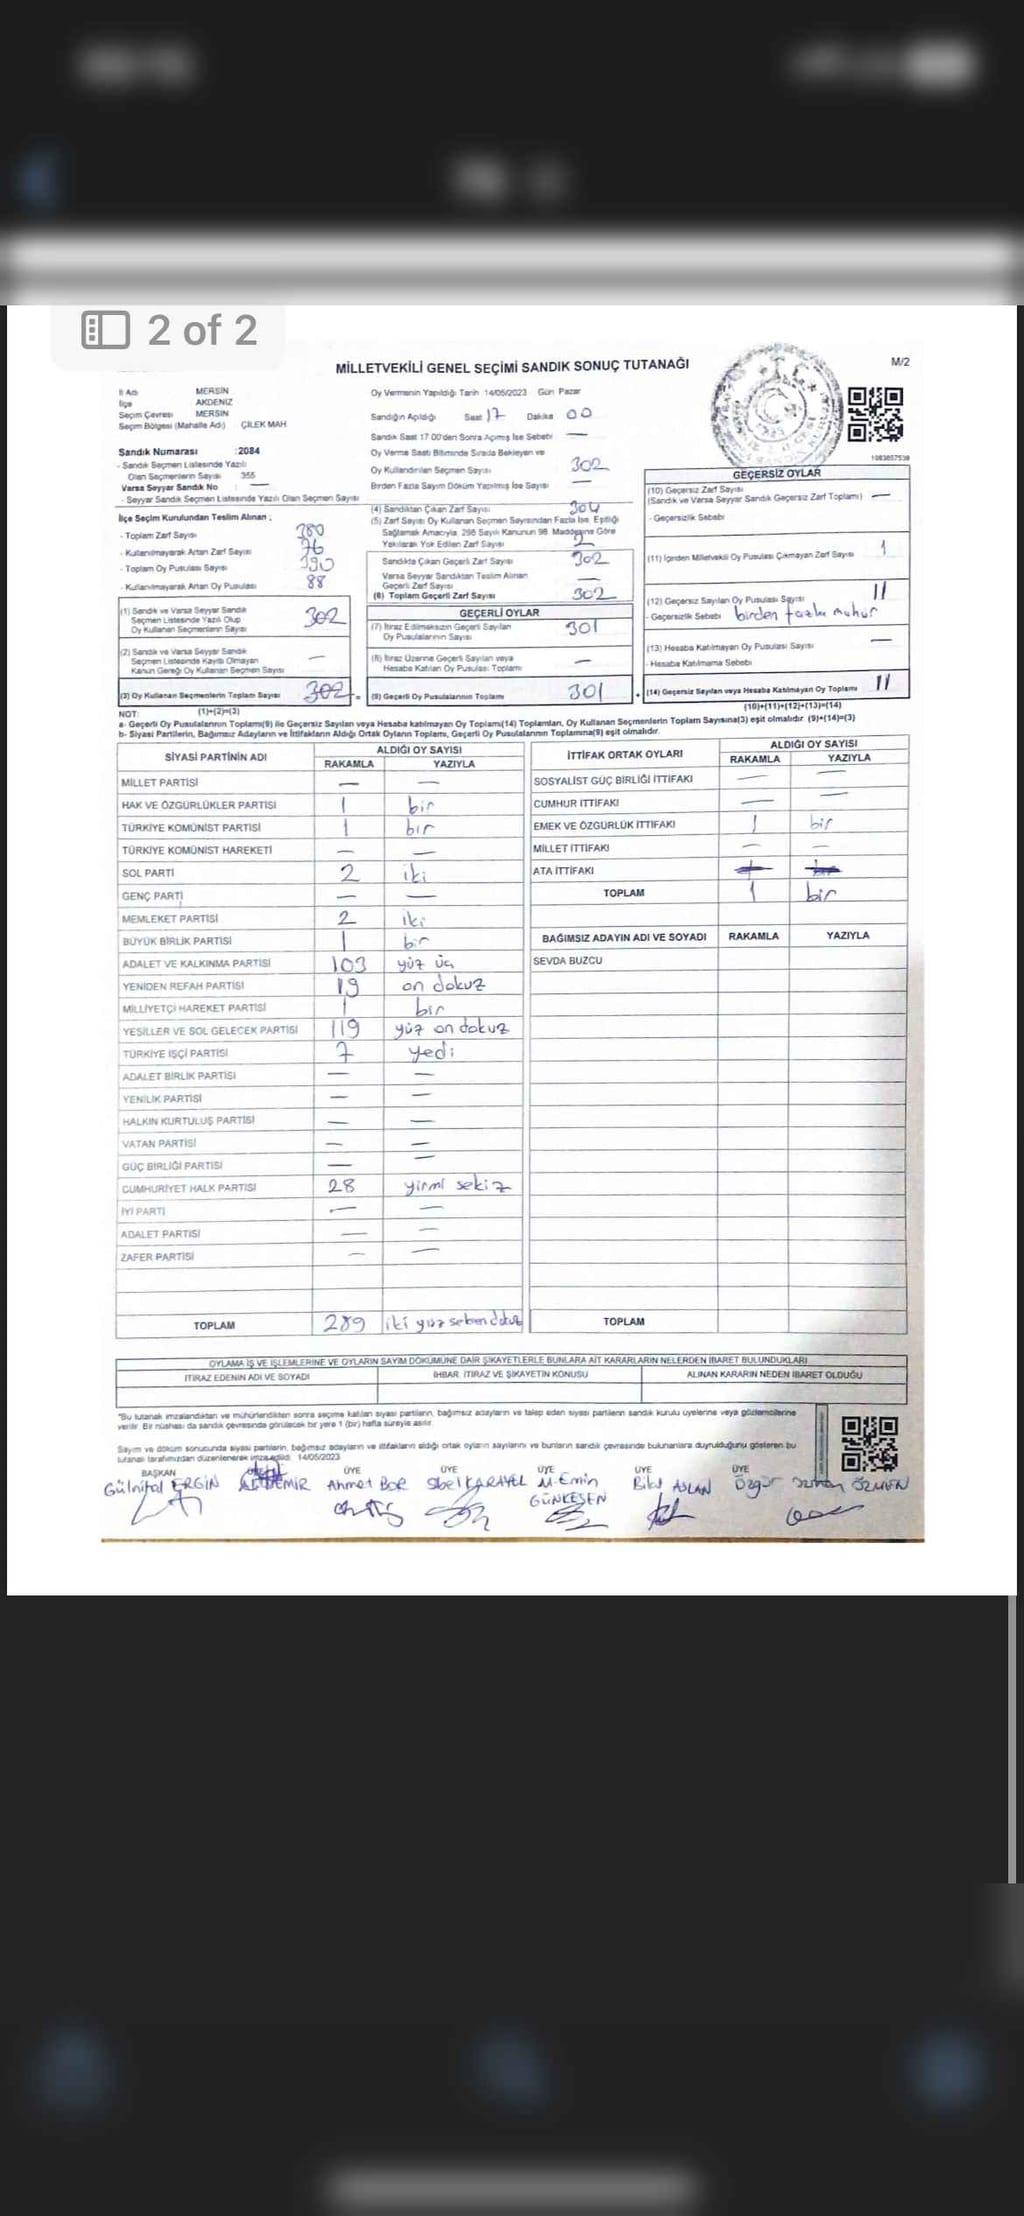 2 of 2
MİLLETVEKİLİ GENEL SEÇİMİ SANDIK SONUÇ TUTANAĞI
M/2
İl Adı MERSİN
İlçe AKDENİZ
Seçim Çevresi MERSİN
Seçim Bölgesi (Mahalle Adı) ÇİLEK MAH
Sandık Numarası :2084
- Sandık Seçmen Listesinde Yazılı
Olan Seçmenlerin Sayısı 355
Varsa Seyyar Sandık No —
- Seyyar Sandık Seçmen Listesinde Yazılı Olan Seçmen Sayısı
Oy Vermenin Yapıldığı Tarih 14/05/2023 Gün Pazar
Sandığın Açıldığı Saat 17 Dakika 00
Sandık Saat 17 00'den Sonra Açımış İse Sebebi —
Oy Verme Saati Bitiminde Sırada Bekleyen ve
Oy Kullandırılan Seçmen Sayısı 302
Birden Fazla Sayım Döküm Yapılmış İse Sayısı —
1083857538
İlçe Seçim Kurulundan Teslim Alınan ;
- Toplam Zarf Sayısı 380
- Kullanılmayarak Artan Zarf Sayısı 76
- Toplam Oy Pusulası Sayısı 390
- Kullanılmayarak Artan Oy Pusulası 88
(1) Sandık ve Varsa Seyyar Sandık
Seçmen Listesinde Yazılı Olup
Oy Kullanan Seçmenlerin Sayısı 302
(2) Sandık ve Varsa Seyyar Sandık
Seçmen Listesinde Kayıtlı Olmayan
Kanun Gereği Oy Kullanan Seçmen Sayısı —
(3) Oy Kullanan Seçmenlerin Toplam Sayısı 302
(1)+(2)=(3)
(4) Sandıktan Çıkan Zarf Sayısı 304
(5) Zarf Sayısı Oy Kullanan Seçmen Sayısından Fazla İse Eşitliği
Sağlamak Amacıyla 298 Sayılı Kanunun 98. Maddesine Göre
Yakılarak Yok Edilen Zarf Sayısı 2
Sandıkta Çıkan Geçerli Zarf Sayısı 302
Varsa Seyyar Sandıktan Teslim Alınan
Geçerli Zarf Sayısı —
(6) Toplam Geçerli Zarf Sayısı 302
GEÇERLİ OYLAR
(7) İtiraz Edilmeksizin Geçerli Sayılan
Oy Pusulalarının Sayısı 301
(8) İtiraz Üzerine Geçerli Sayılan veya
Hesaba Katılan Oy Pusulası Toplamı —
(9) Geçerli Oy Pusulalarının Toplamı 301
GEÇERSİZ OYLAR
(10) Geçersiz Zarf Sayısı
(Sandık ve Varsa Seyyar Sandık Geçersiz Zarf Toplamı) —
- Geçersizlik Sebebi
(11) İçinden Milletvekili Oy Pusulası Çıkmayan Zarf Sayısı 1
(12) Geçersiz Sayılan Oy Pusulası Sayısı 11
- Geçersizlik Sebebi birden fazla mühür
(13) Hesaba Katılmayan Oy Pusulası Sayısı —
- Hesaba Katılmama Sebebi
(14) Geçersiz Sayılan veya Hesaba Katılmayan Oy Toplamı 11
(10)+(11)+(12)+(13)=(14)
NOT:
a- Geçerli Oy Pusulalarının Toplamı(9) ile Geçersiz Sayılan veya Hesaba katılmayan Oy Toplamı(14) Toplamları, Oy Kullanan Seçmenlerin Toplam Sayısına(3) eşit olmalıdır (9)+(14)=(3)
b- Siyasi Partilerin, Bağımsız Adayların ve İttifakların Aldığı Ortak Oyların Toplamı, Geçerli Oy Pusulalarının Toplamına(9) eşit olmalıdır.
SİYASİ PARTİNİN ADI ALDIĞI OY SAYISI
RAKAMLA YAZIYLA
MİLLET PARTİSİ — —
HAK VE ÖZGÜRLÜKLER PARTİSİ 1 bir
TÜRKİYE KOMÜNİST PARTİSİ 1 bir
TÜRKİYE KOMÜNİST HAREKETİ — —
SOL PARTİ 2 iki
GENÇ PARTİ — —
MEMLEKET PARTİSİ 2 iki
BÜYÜK BİRLİK PARTİSİ 1 bir
ADALET VE KALKINMA PARTİSİ 103 yüz üç
YENİDEN REFAH PARTİSİ 19 on dokuz
MİLLİYETÇİ HAREKET PARTİSİ 1 bir
YEŞİLLER VE SOL GELECEK PARTİSİ 119 yüz on dokuz
TÜRKİYE İŞÇİ PARTİSİ 7 yedi
ADALET BİRLİK PARTİSİ — —
YENİLİK PARTİSİ — —
HALKIN KURTULUŞ PARTİSİ — —
VATAN PARTİSİ — —
GÜÇ BİRLİĞİ PARTİSİ — —
CUMHURİYET HALK PARTİSİ 28 yirmi sekiz
İYİ PARTİ — —
ADALET PARTİSİ — —
ZAFER PARTİSİ — —
TOPLAM 289 iki yüz seksen dokuz
İTTİFAK ORTAK OYLARI ALDIĞI OY SAYISI
RAKAMLA YAZIYLA
SOSYALİST GÜÇ BİRLİĞİ İTTİFAKI — —
CUMHUR İTTİFAKI — —
EMEK VE ÖZGÜRLÜK İTTİFAKI 1 bir
MİLLET İTTİFAKI — —
ATA İTTİFAKI
TOPLAM 1 bir
BAĞIMSIZ ADAYIN ADI VE SOYADI RAKAMLA YAZIYLA
SEVDA BUZCU
TOPLAM
OYLAMA İŞ VE İŞLEMLERİNE VE OYLARIN SAYIM DÖKÜMÜNE DAİR ŞİKAYETLERLE BUNLARA AİT KARARLARIN NELERDEN İBARET BULUNDUKLARI
İTİRAZ EDENİN ADI VE SOYADI İHBAR İTİRAZ VE ŞİKAYETİN KONUSU ALINAN KARARIN NEDEN İBARET OLDUĞU
*Bu tutanak imzalandıktan ve mühürlendikten sonra seçime katılan siyasi partilerin, bağımsız adayların ve talep eden siyasi partilerin sandık kurulu üyelerine veya gözlemcilerine
verilir. Bir nüshası da sandık çevresinde görülecek bir yere 1 (bir) hafta süreyle asılır.
Sayım ve döküm sonucunda siyasi partilerin, bağımsız adayların ve ittifakların aldığı ortak oyların sayılarını ve bunların sandık çevresinde bulunanlara duyrulduğunu gösteren bu
tutanak tarafımızdan düzenlenerek imza edildi. 14/05/2023
BAŞKAN ÜYE ÜYE ÜYE ÜYE ÜYE ÜYE
Gülnihal ERGİN Ahmet BOR Sibel KARAYEL M.Emin GÜNKEŞEN Bilal ASLAN Özgür ÖZMEN